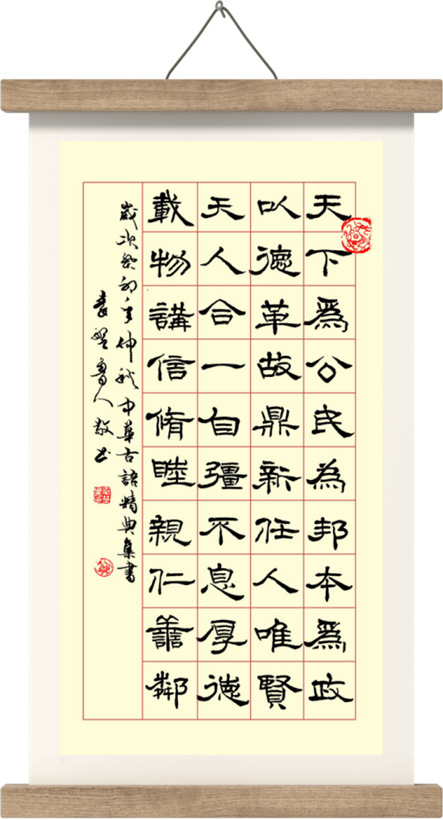 天下爲公民為邦本爲政
以德革故鼎新任人唯賢
天人合一自彊不息厚德
載物講信脩睦親仁善鄰
歲次癸卯年仲秋中華古語精典集書
魯人敬书